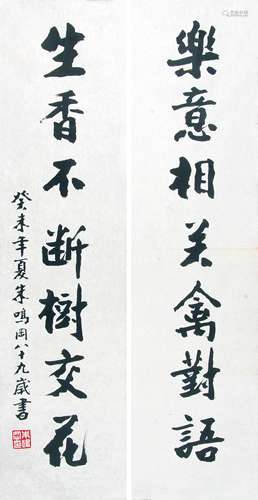 樂意相关禽對語
生香不断樹交花
癸未年夏朱鳴岡八十九歲書